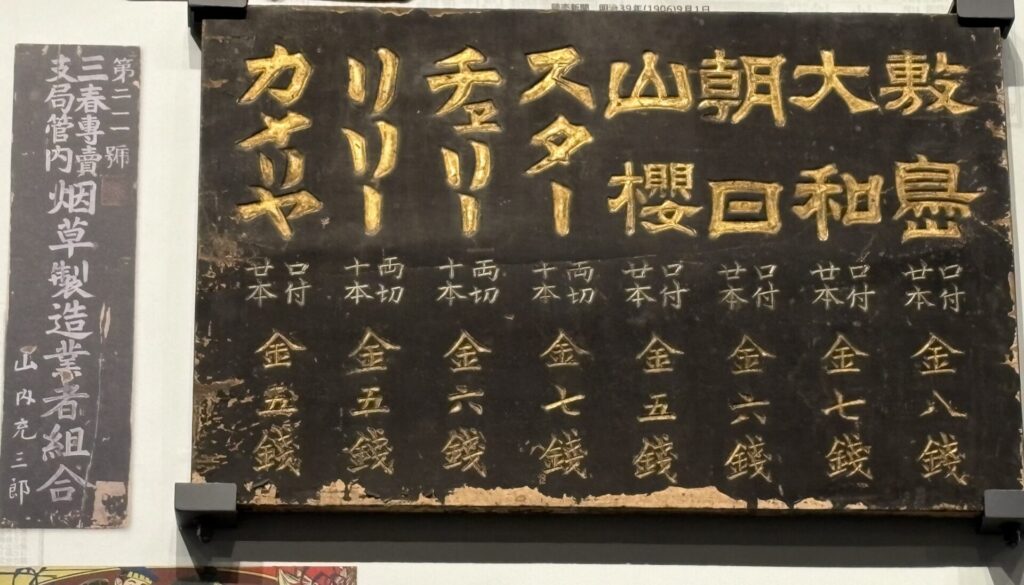 読売新聞 明治39年(1906)9月1日
敷島 口付廿本 金八錢
大和 口付廿本 金七錢
朝日 口付廿本 金六錢
山櫻 口付廿本 金五錢
スター 両切十本 金七錢
チェリー 両切十本 金六錢
リリー 両切十本 金五錢
カメリヤ 口付廿本 金五錢
第二二一號
三春專賣
支局管内
烟草製造業者組合
山内充三郎